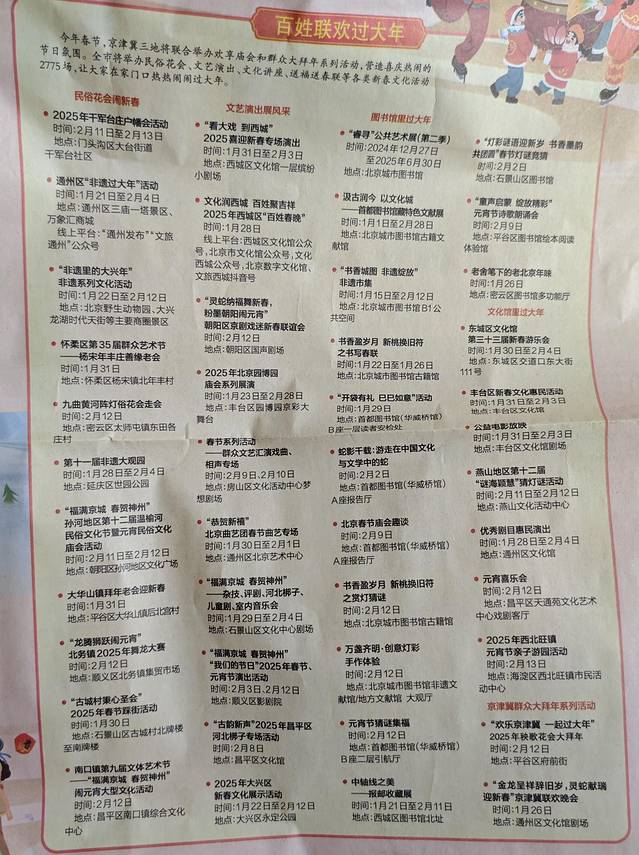 百姓联欢过大年
今年春节,京津冀三地将联合举办欢享庙会和群众大拜年系列活动,营造喜庆热闹的
节日氛围。全市将举办民俗花会、文艺演出、文化讲座、送福送春联等各类新春文化活动
2775场,让大家在家门口热热闹闹过大年。
民俗花会闹新春
•2025年千军台庄户幡会活动
时间:2月11日至2月13日
地点:门头沟区大台街道
千军台社区
•通州区“非遗过大年”活动
时间:1月21日至2月4日
地点:通州区三庙一塔景区、
万象汇商城
线上平台:“通州发布”“文旅
通州”公众号
•“非遗里的大兴年”
非遗系列文化活动
时间:1月22日至2月12日
地点:北京野生动物园、大兴
龙湖时代天街等主要商圈景区
•怀柔区第35届群众艺术节
——杨宋年丰庄善缘老会
时间:1月31日
地点:怀柔区杨宋镇北年丰村
•九曲黄河阵灯俗花会走会
时间:2月12日
地点:密云区太师屯镇东田各
庄村
•第十一届非遗大观园
时间:1月28日至2月4日
地点:延庆区世园公园
•“福满京城 春贺神州”
孙河地区第十二届温榆河
民俗文化节暨元宵民俗文化
庙会活动
时间:2月11日至2月12日
地点:朝阳区孙河地区文化广场
•大华山镇拜年老会迎新春
时间:1月31日
地点:平谷区大华山镇后北宫村
•“龙腾狮跃闹元宵”
北务镇2025年舞龙大赛
时间:2月12日
地点:顺义区北务镇集贸市场
•“古城村秉心圣会”
2025年春节踩街活动
时间:1月30日
地点:石景山区古城村北牌楼
至南牌楼
•南口镇第九届文体艺术节
——“福满京城 春贺神州”
闹元宵大型文化活动
时间:2月12日
地点:昌平区南口镇综合文化
中心
文艺演出展风采
•“看大戏 到西城”
2025喜迎新春专场演出
时间:1月31日至2月3日
地点:西城区文化馆一层缤纷
小剧场
•文化润西城 百姓聚吉祥
2025年西城区“百姓春晚”
时间:1月28日
线上平台:西城区文化馆公众
号,北京市文化馆公众号,文化
西城公众号,北京数字文化馆、
文旅西城抖音号
•“灵蛇纳福舞新春,
粉墨朝阳闹元宵”
朝阳区京剧戏迷新春联谊会
时间:2月12日
地点:朝阳区国声剧场
•2025年北京园博园
庙会系列展演
时间:1月23日至2月28日
地点:丰台区园博园京彩大
舞台
春节系列活动
——群众文艺汇演戏曲、
相声专场
时间:2月9日、2月10日
地点:房山区文化活动中心梦
想剧场
•“恭贺新禧”
北京曲艺团春节曲艺专场
时间:1月30日至2月1日
地点:通州区北京艺术中心
•“福满京城 春贺神州”
——杂技、评剧、河北梆子、
儿童剧、室内音乐会
时间:1月29日至2月4日
地点:石景山区文化中心剧场
•“福满京城 春贺神州”
“我们的节日”2025年春节、
元宵节演出活动
时间:2月3日、2月12日
地点:顺义区影剧院
•“古韵新声”2025年昌平区
河北梆子专场活动
时间:2月8日
地点:昌平区文化馆
•2025年大兴区
新春文化展示活动
时间:1月22日至2月12日
地点:大兴区永定公园
图书馆里过大年
•“睿寻”公共艺术展(第二季)
时间:2024年12月27日
至2025年6月30日
地点:北京城市图书馆
•汲古润今 以文化城
——首都图书馆藏特色文献展
时间:1月1日至2月28日
地点:北京城市图书馆古籍文
献馆
•“书香城图 非遗绽放”
非遗市集
时间:1月15日至2月12日
地点:北京城市图书馆B1公
共空间
•书香盈岁月 新桃换旧符
之书写春联
时间:1月22日至1月26日
地点:北京城市图书馆古籍馆
•“开袋有礼 巳巳如意”活动
时间:1月29日
地点:首都图书馆(华威桥馆)
B座一层读者安检处
•蛇影千载:游走在中国文化
与文学中的蛇
时间:2月2日
地点:首都图书馆(华威桥馆)
A座报告厅
•北京春节庙会趣谈
时间:2月9日
地点:首都图书馆(华威桥馆)
A座报告厅
•书香盈岁月 新桃换旧符
之赏灯猜谜
时间:2月12日
地点:北京城市图书馆古籍馆
•万盏齐明·创意灯彩
手作体验
时间:2月12日
地点:北京城市图书馆非遗文
献馆/地方文献馆 大观厅
•元宵节猜谜集福
时间:2月12日
地点:首都图书馆(华威桥馆)
B座二层引航厅
•中轴线之美
——报邮收藏展
时间:1月21日至2月11日
地点:西城区图书馆北址
•“灯彩谜语迎新岁 书香墨韵
共团圆”春节灯谜竞猜
时间:2月2日
地点:石景山区图书馆
•“童声启蒙 绽放精彩”
元宵节诗歌朗诵会
时间:2月9日
地点:平谷区图书馆绘本阅读
体验馆
•老舍笔下的老北京年味
时间:1月26日
地点:密云区图书馆多功能厅
文化馆里过大年
•东城区文化馆
第三十三届新春游乐会
时间:1月30日至2月4日
地点:东城区交道口东大街
111号
•丰台区新春文化惠民活动
时间:1月31日至2月3日
地点:丰台区文化馆
公益电影放映
时间:1月31日至2月3日
地点:丰台区文化馆剧场
•燕山地区第十二届
“谜海颖慧”猜灯谜活动
时间:2月11日至2月12日
地点:燕山文化活动中心
•优秀剧目惠民演出
时间:1月28日至2月4日
地点:通州区文化馆
•元宵喜乐会
时间:2月12日
地点:昌平区天通苑文化艺术
中心戏剧客厅
•2025年西北旺镇
元宵节亲子游园活动
时间:2月13日
地点:海淀区西北旺镇市民活
动中心
京津冀群众大拜年系列活动
•“欢乐京津冀 一起过大年”
2025年秧歌花会大拜年
时间:2月12日
地点:平谷区府前街
•“金龙呈祥辞旧岁,灵蛇献瑞
迎新春”京津冀联欢晚会
时间:1月26日
地点:通州区文化馆剧场